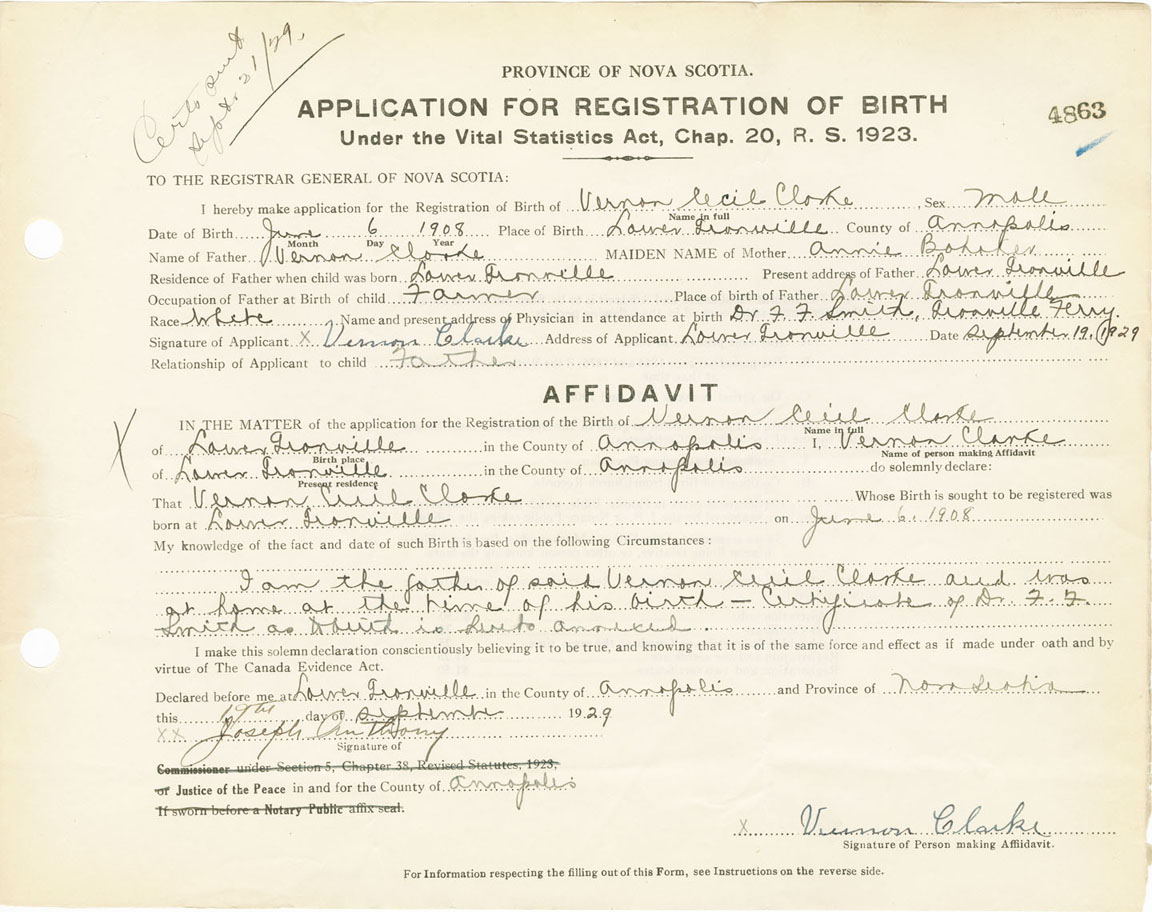 Certs sent
Sept. 21/29.
PROVINCE OF NOVA SCOTIA.
APPLICATION FOR REGISTRATION OF BIRTH
4863
Under the Vital Statistics Act, Chap. 20, R. S. 1923.
TO THE REGISTRAR GENERAL OF NOVA SCOTIA:
I hereby make application for the Registration of Birth of Vernon Cecil Clarke, Sex Male
Name in full
Date of Birth June 6 1908 Place of Birth Lower Granville County of Annapolis
Month Day Year
Name of Father Vernon Clarke MAIDEN NAME of Mother Annie Bohaker
Residence of Father when child was born Lower Granville Present address of Father Lower Granville
Occupation of Father at Birth of child Farmer Place of birth of Father Lower Granville
Race White Name and present address of Physician in attendance at birth Dr F. F. Smith, Granville Ferry.
Signature of Applicant X Vernon Clarke Address of Applicant Lower Granville Date September 19, 1929
Relationship of Applicant to child Father
AFFIDAVIT
X
IN THE MATTER of the application for the Registration of the Birth of Vernon Cecil Clarke
Name in full
of Lower Granville in the County of Annapolis I, Vernon Clarke
Birth place Name of person making Affidavit
of Lower Granville in the County of Annapolis do solemnly declare:
Present residence
That Vernon Cecil Clarke Whose Birth is sought to be registered was
born at Lower Granville on June 6, 1908
My knowledge of the fact and date of such Birth is based on the following Circumstances:
I am the father of said Vernon Cecil Clarke and was
at home at the time of his birth – Certificate of Dr. F. F.
Smith as to birth is hereto annexed.
I make this solemn declaration conscientiously believing it to be true, and knowing that it is of the same force and effect as if made under oath and by
virtue of The Canada Evidence Act.
Declared before me at Lower Granville in the County of Annapolis and Province of Nova Scotia
this 19th day of September 1929
XX Joseph Anthony
Signature of
Commissioner under Section 5, Chapter 38, Revised Statutes, 1923,
or Justice of the Peace in and for the County of Annapolis
If sworn before a Notary Public affix seal.
X Vernon Clarke
Signature of Person making Affidavit.
For Information respecting the filling out of this Form, see Instructions on the reverse side.